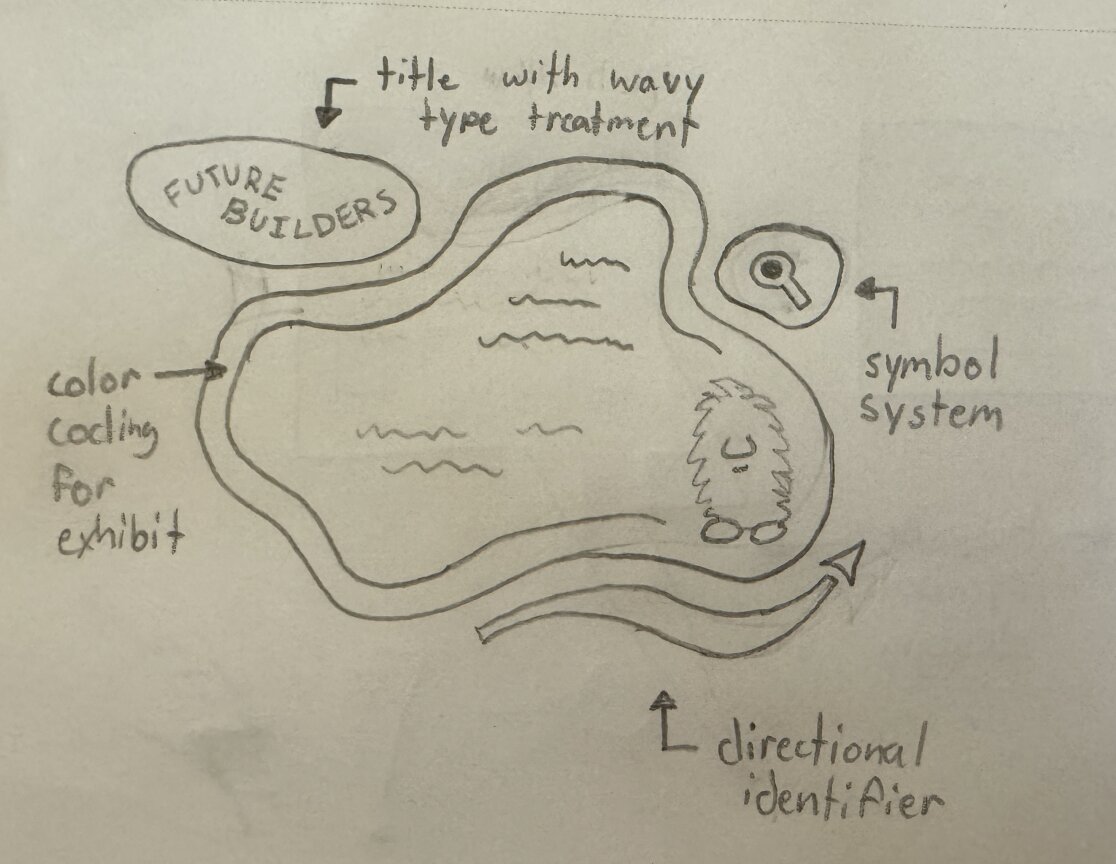 title with wavy
type treatment
FUTURE
BUILDERS
symbol
system
color
coding
for
exhibit
directional
identifier